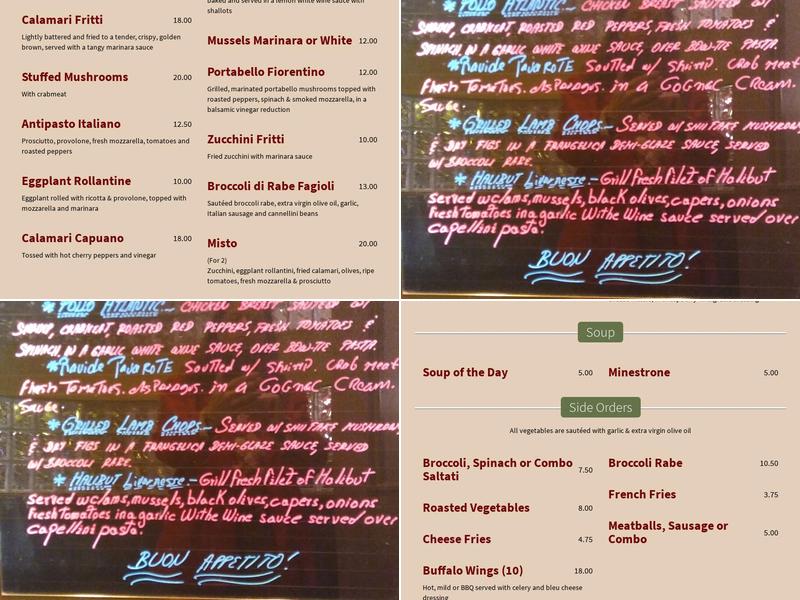 baked and served in a lemon white wine sauce with
shallots
Calamari Fritti 18.00
Lightly battered and fried to a tender, crispy, golden
brown, served with a tangy marinara sauce
Mussels Marinara or White 12.00
Stuffed Mushrooms 20.00
With crabmeat
Portabello Fiorentino 12.00
Grilled, marinated portobello mushrooms topped with
roasted peppers, spinach & smoked mozzarella, in a
balsamic vinegar reduction
Antipasto Italiano 12.50
Prosciutto, provolone, fresh mozzarella, tomatoes and
roasted peppers
Zucchini Fritti 10.00
Fried zucchini with marinara sauce
Eggplant Rollantine 10.00
Eggplant rolled with ricotta & provolone, topped with
mozzarella and marinara
Broccoli di Rabe Fagioli 13.00
Sautéed broccoli rabe, extra virgin olive oil, garlic,
Italian sausage and cannellini beans
Calamari Capuano 18.00
Tossed with hot cherry peppers and vinegar
Misto 20.00
(For 2)
Zucchini, eggplant rollantini, fried calamari, olives, ripe
tomatoes, fresh mozzarella & prosciutto
* POLLO ATLANTIC - CHICKEN BREAST SAUTEED W/
SHRIMP, CRABMEAT, ROASTED RED PEPPERS, FRESH TOMATOES &
SPINACH, IN A GARLIC WHITE WINE SAUCE, OVER BOW-TIE PASTA.
* Ravide PavaroTE Souffled w/ Shrimp. Crab meat
Fresh Tomatoes. Asparagus. in a Cognac Cream.
Sauce.
* GRILLED LAMB CHOPS - SERVED W/ SHIITAKE MUSHROOM
& DRY FIGS IN A FRANGELICA DEMI-GLAZE SAUCE, SERVED
W/ BROCCOLI RABE.
* HALIBUT Livornesse. - Grill fresh filet of Halibut
Served w/clams, mussels, black olives, capers, onions
Fresh Tomatoes in a garlic White Wine sauce served over
capellini pasta.
BUON APPETITO!
* POLLO ATLANTIC - CHICKEN BREAST SAUTEED W/
SHRIMP, CRABMEAT, ROASTED RED PEPPERS, FRESH TOMATOES &
SPINACH, IN A GARLIC WHITE WINE SAUCE, OVER BOW-TIE PASTA.
* Ravide PavaroTE Souffled w/ Shrimp. Crab meat
Fresh Tomatoes. Asparagus. in a Cognac Cream.
Sauce.
* GRILLED LAMB CHOPS - SERVED W/ SHIITAKE MUSHROOM
& DRY FIGS IN A FRANGELICA DEMI-GLAZE SAUCE, SERVED
W/ BROCCOLI RABE.
* HALIBUT Livornesse. - Grill fresh filet of Halibut
Served w/clams, mussels, black olives, capers, onions
Fresh Tomatoes in a garlic White Wine sauce served over
capellini pasta.
BUON APPETITO!
Soup
Soup of the Day 5.00
Minestrone 5.00
Side Orders
All vegetables are sautéed with garlic & extra virgin olive oil
Broccoli, Spinach or Combo
Saltati 7.50
Broccoli Rabe 10.50
French Fries 3.75
Roasted Vegetables 8.00
Meatballs, Sausage or
Combo 5.00
Cheese Fries 4.75
Buffalo Wings (10) 18.00
Hot, mild or BBQ served with celery and bleu cheese
dressing